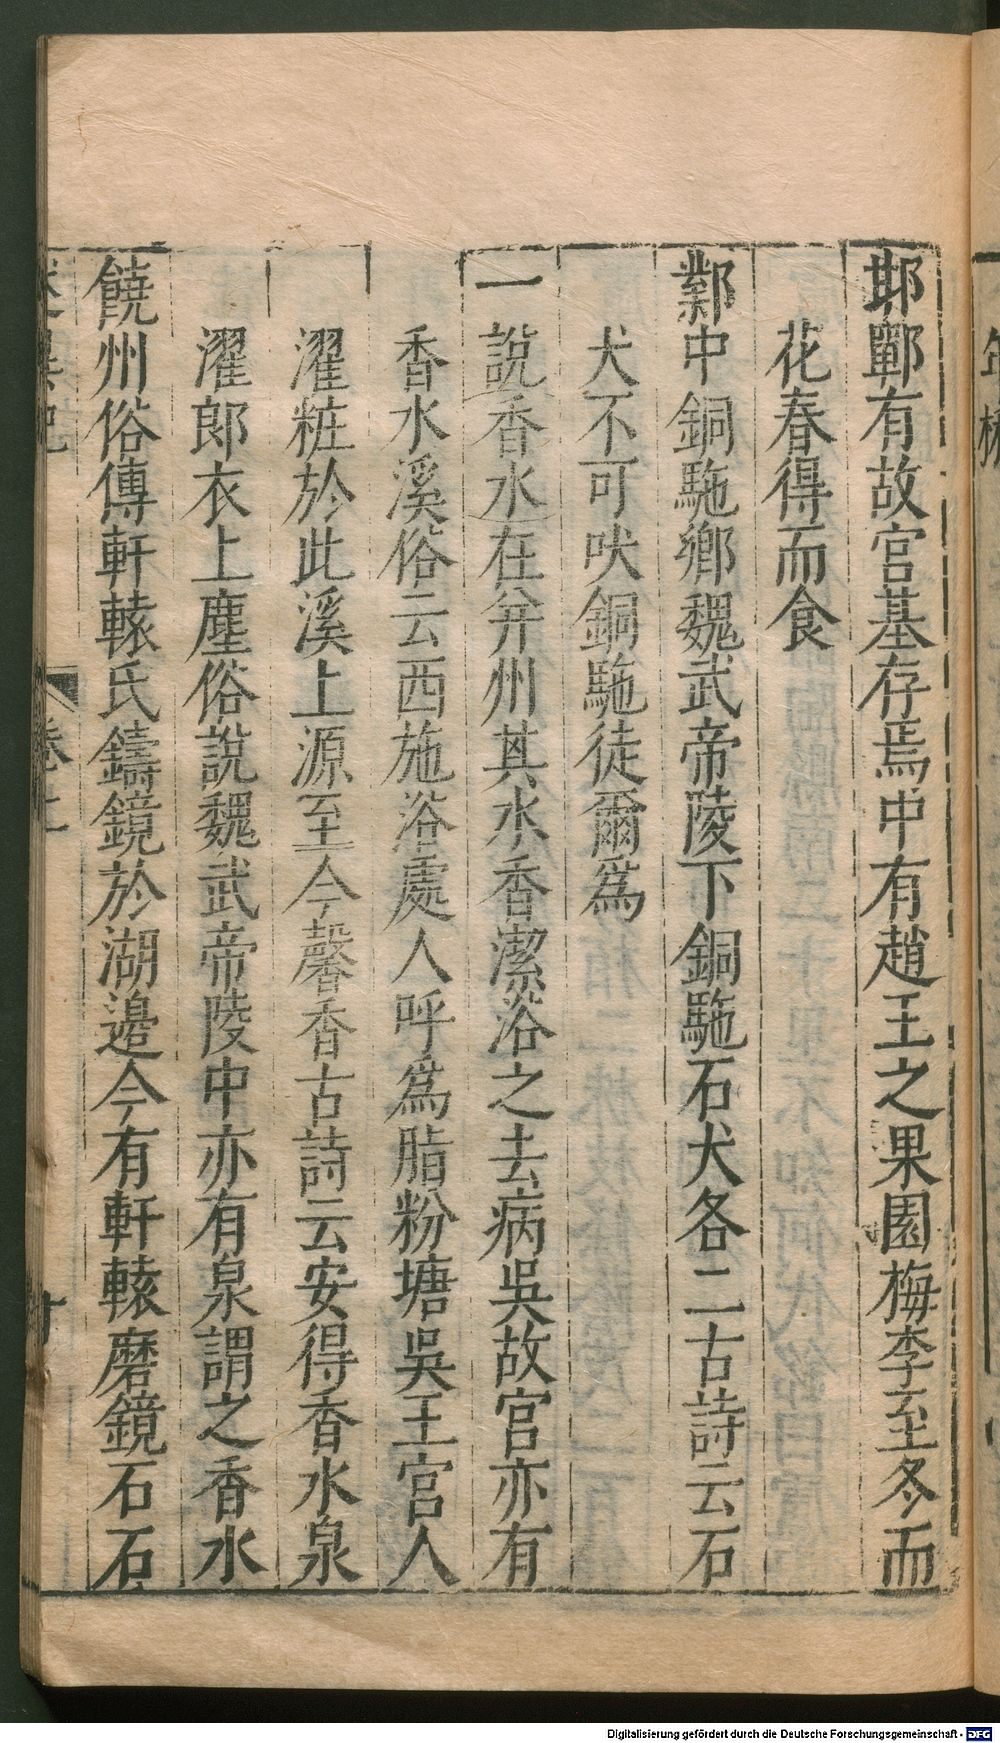 邯鄲有故宮基存焉中有趙王之果園梅李至冬而
花春得而食
鄴中銅駞鄉魏武帝陵下銅駞石犬各二古詩云石
犬不可吠銅駞徒爾爲
一說香水在并州其水香潔浴之去病吳故宮亦有
香水溪俗云西施浴處人呼爲脂粉塘吳王宮人
濯粧於此溪上源至今馨香古詩云安得香水泉
濯郎衣上塵俗說魏武帝陵中亦有泉謂之香水
饒州俗傳軒轅氏鑄鏡於湖邉今有軒轅磨鏡石石
Digitalisierung gefördert durch die Deutsche Forschungsgemeinschaft - DFG